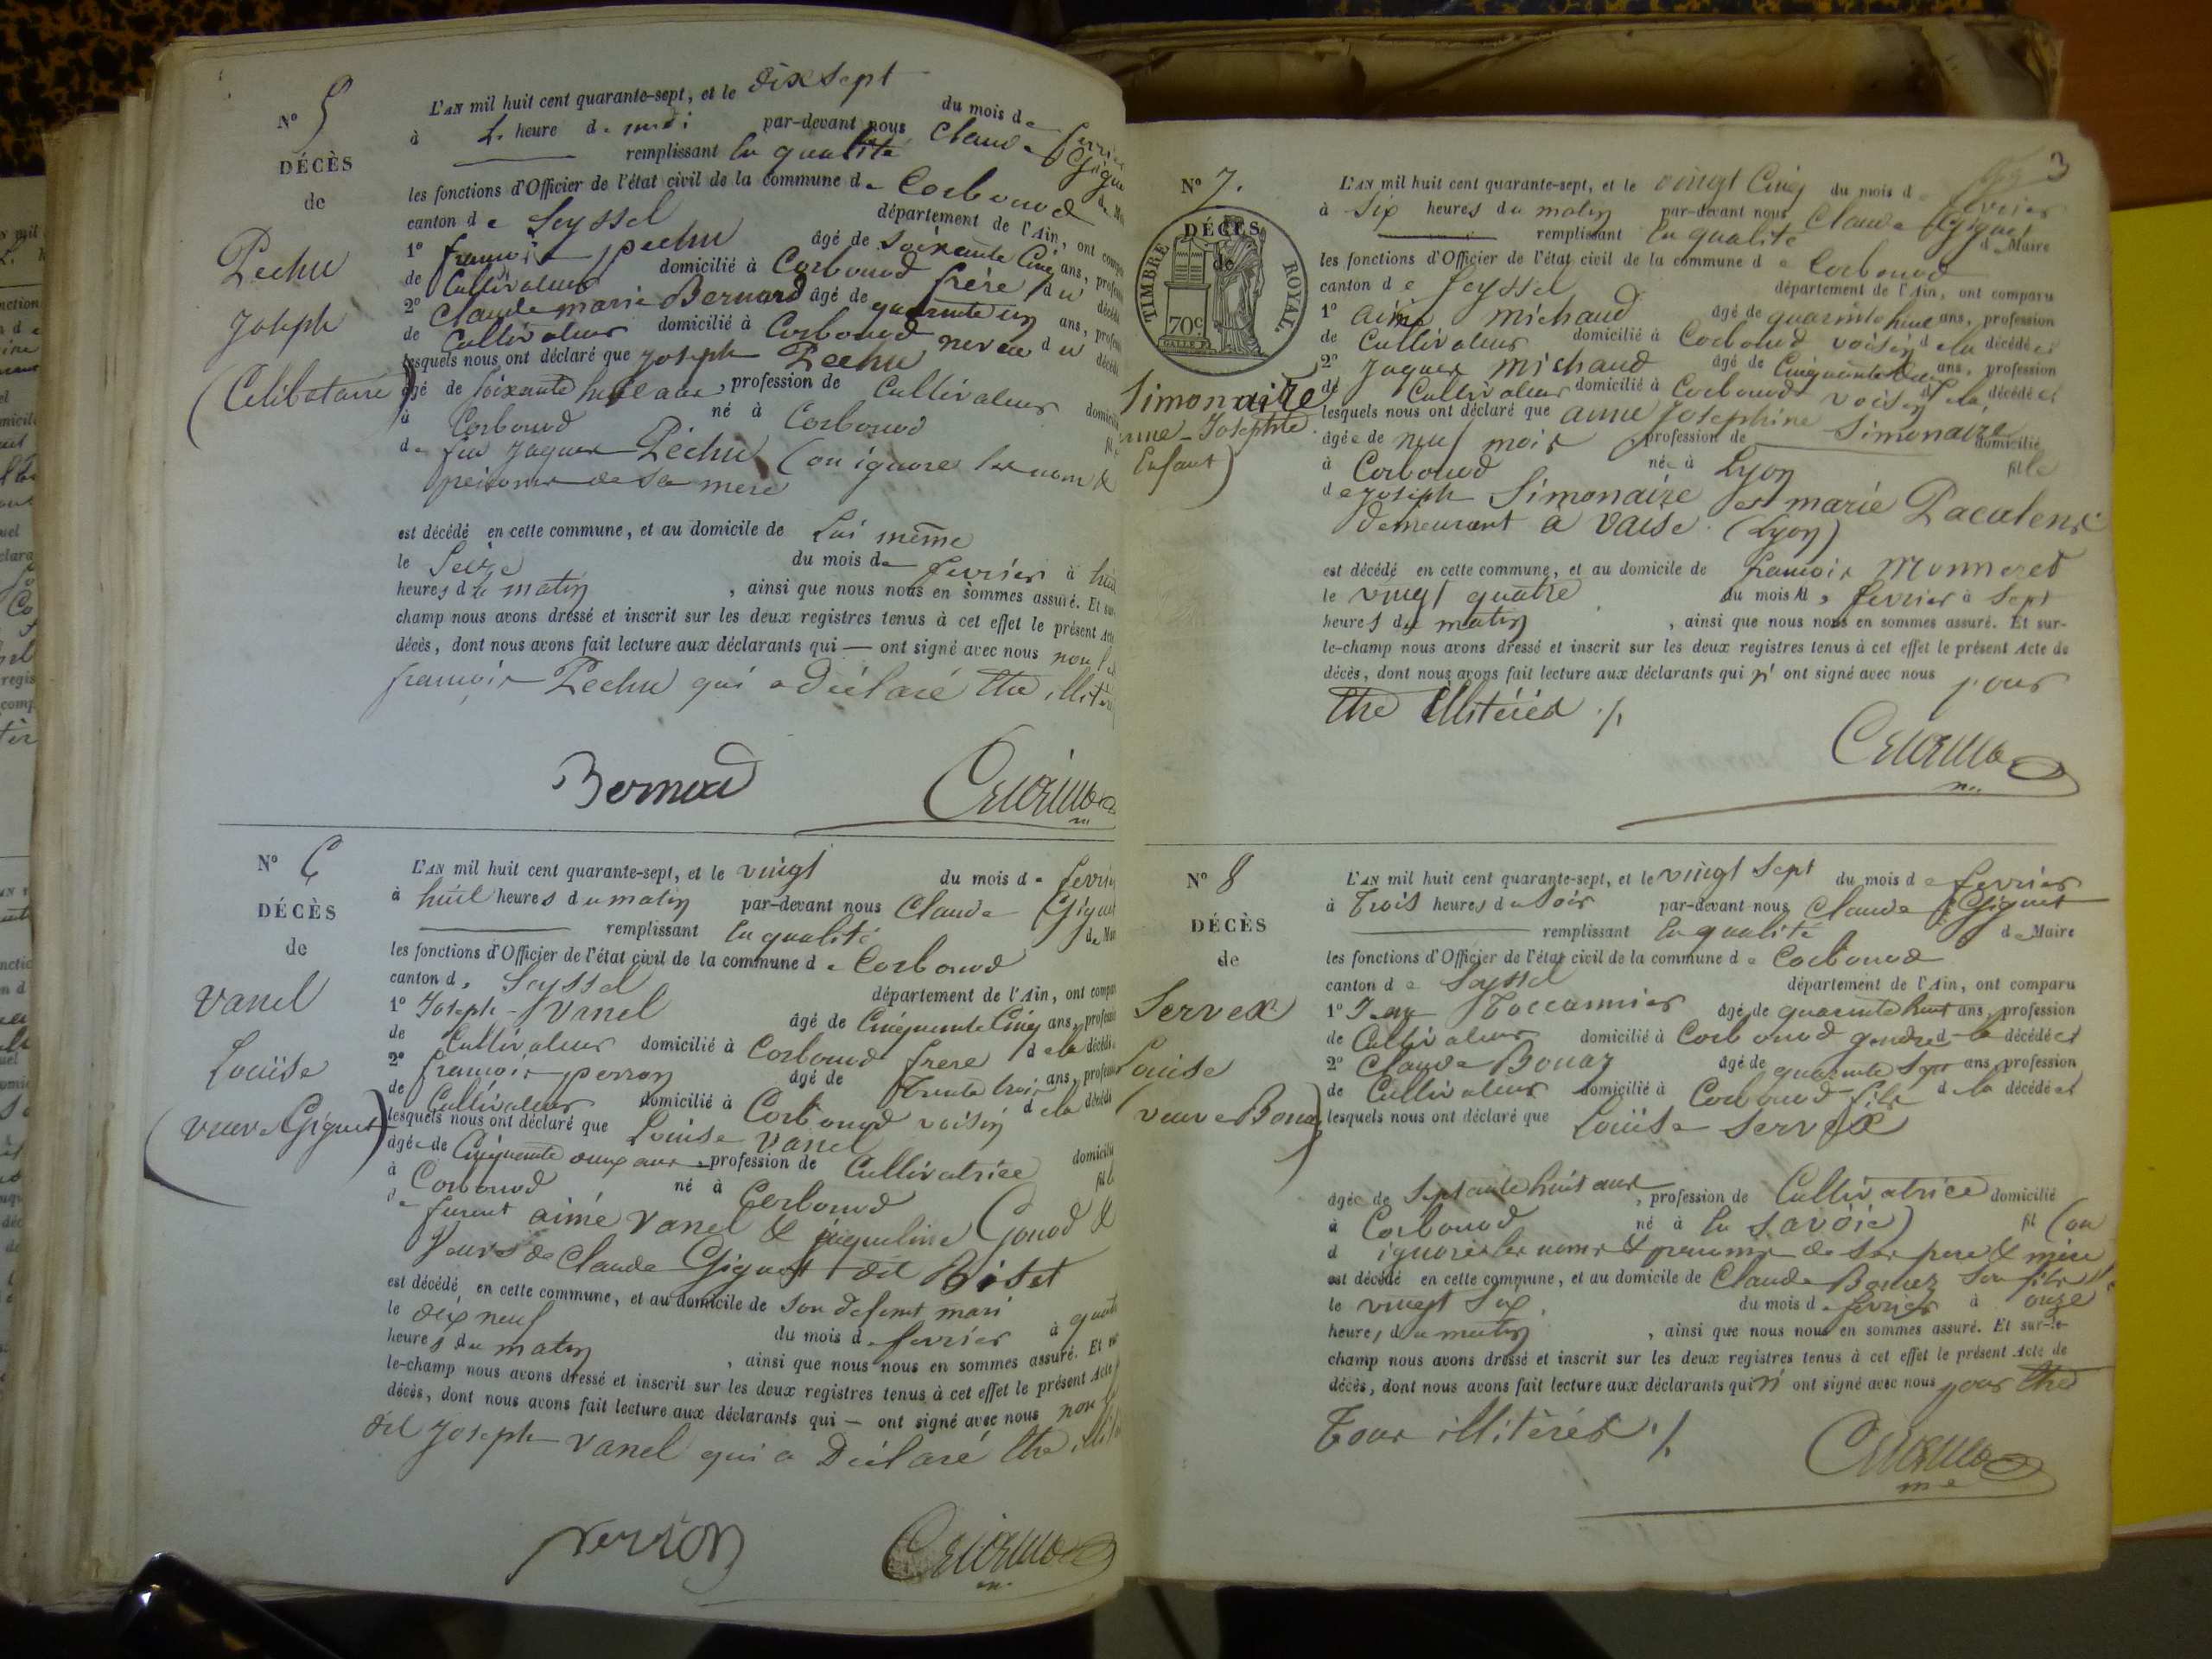 N° 5
DÉCÈS
de
Pechu
Joseph
(Célibataire)
L'AN mil huit cent quarante-sept, et le dix sept du mois de fevrier
à 1. heure de midi par-devant nous Claude Gigu
remplissant la qualité de M
les fonctions d'Officier de l'état civil de la commune de Corbonod
canton de Seyssel département de l'Ain, ont compa
1° francois pechu âgé de Soixante Cinq ans, profes
de Cultivateur domicilié à Corbonod frère du décéd
2° Claude marie Bernard âgé de quarante un ans, profes
de Cultivateur domicilié à Corbonod neveu du décéd
lesquels nous ont déclaré que joseph Pechu
âgé de soixante huit ans, profession de Cultivateur domicili
à Corbonod né à Corbonod fil
de feu Jaques Pechu (on ignore les nom &
prénoms de sa mere
est décédé en cette commune, et au domicile de Lui même
le Seize du mois de fevrier à huit
heures du matin, ainsi que nous nous en sommes assuré. Et sur
champ nous avons dressé et inscrit sur les deux registres tenus à cet effet le présent Acte
décès, dont nous avons fait lecture aux déclarants qui — ont signé avec nous non
francois Pechu qui a déclaré être illitér
Bernard
N° 6
DÉCÈS
de
Vanel
Louise
(veuve Giguet)
L'AN mil huit cent quarante-sept, et le vingt du mois de fevrier
à huit heures du matin par-devant nous Claude Giguet
remplissant la qualité de Mai
les fonctions d'Officier de l'état civil de la commune de Corbonod
canton de Seyssel département de l'Ain, ont compa
1° Joseph Vanel âgé de Cinquante Cinq ans, profess
de Cultivateur domicilié à Corbonod frere de la décédé
2° francois perron âgé de Trente trois ans, profess
de Cultivateur domicilié à Corbonod voisin de la décédé
lesquels nous ont déclaré que Louise Vanel
âgée de Cinquante onze ans, profession de Cultivatrice domicilié
à Corbonod né à Corbonod fille
de furent aimé Vanel & jaqueline Gonod &
veuve de Claude Giguet dit
est décédé en cette commune, et au domicile de Son défunt mari
le dix neuf du mois de fevrier à quat
heures du matin, ainsi que nous nous en sommes assuré. Et sur
le-champ nous avons dressé et inscrit sur les deux registres tenus à cet effet le présent Acte
décès, dont nous avons fait lecture aux déclarants qui — ont signé avec nous non
dit Joseph Vanel qui a Déclaré être illit
perron
3
N° 7.
DÉCÈS
de
TIMBRE ROYAL
70c
Simonaire
anne-Josephte
Enfant)
L'AN mil huit cent quarante-sept, et le vingt Cinq du mois de fevrier
à Six heures du matin par-devant nous Claude Giguet
remplissant la qualité de Maire
les fonctions d'Officier de l'état civil de la commune de Corbonod
canton de Seyssel département de l'Ain, ont comparu
1° aimé Michaud âgé de quarante huit ans, profession
de Cultivateur domicilié à Corbonod voisin de la décédée
2° Jaques Michaud âgé de Cinquante deux ans, profession
de Cultivateur domicilié à Corbonod voisin de la décédée
lesquels nous ont déclaré que anne Josephine Simonaire
âgée de neuf mois profession de domicilié
à Corbonod née à Lyon fille
de joseph Simonaire et marie Pacalens
demeurant à Vaise (Lyon)
est décédé en cette commune, et au domicile de francois Monneret
le vingt quatre du mois de fevrier à Sept
heures du matin, ainsi que nous nous en sommes assuré. Et sur-
le-champ nous avons dressé et inscrit sur les deux registres tenus à cet effet le présent Acte de
décès, dont nous avons fait lecture aux déclarants qui n'ont signé avec nous pour
être illitérés ./.
N° 8
DÉCÈS
de
Servex
Louise
veuve Bouaz)
L'AN mil huit cent quarante-sept, et le vingt Sept du mois de fevrier
à Trois heures du Soir par-devant nous Claude Giguet
remplissant la qualité de Maire
les fonctions d'Officier de l'état civil de la commune de Corbonod
canton de Seyssel département de l'Ain, ont comparu
1° Jean Toccannier âgé de quarante huit ans, profession
de Cultivateur domicilié à Corbonod gendre de la décédée
2° Claude Bouaz âgé de quarante Sept ans, profession
de Cultivateur domicilié à Corbonod fils de la décédée
lesquels nous ont déclaré que Louise Servex
âgée de Septante huit ans, profession de Cultivatrice domicilié
à Corbonod né à la Savoie) fil (on
d ignore les noms & prenoms de Ses pere & mère
est décédé en cette commune, et au domicile de Claude Bouaz Son fils
le vingt Six du mois de fevrier à onze
heures du matin, ainsi que nous nous en sommes assuré. Et sur-le-
champ nous avons dressé et inscrit sur les deux registres tenus à cet effet le présent Acte de
décès, dont nous avons fait lecture aux déclarants qui n'ont signé avec nous pour être
Tous illitérés ./.